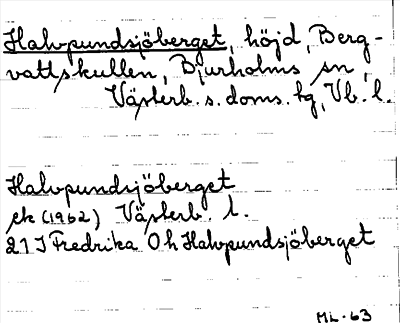 Halvpundsjöberget, höjd, Berg-
vattskullen, Bjurholms sn,
Västerb. s. doms. tg, Vb. l.
Halvpundsjöberget
ek (1962) Västerb. l.
21 J Fredrika O h Halvpundsjöberget
ML-63